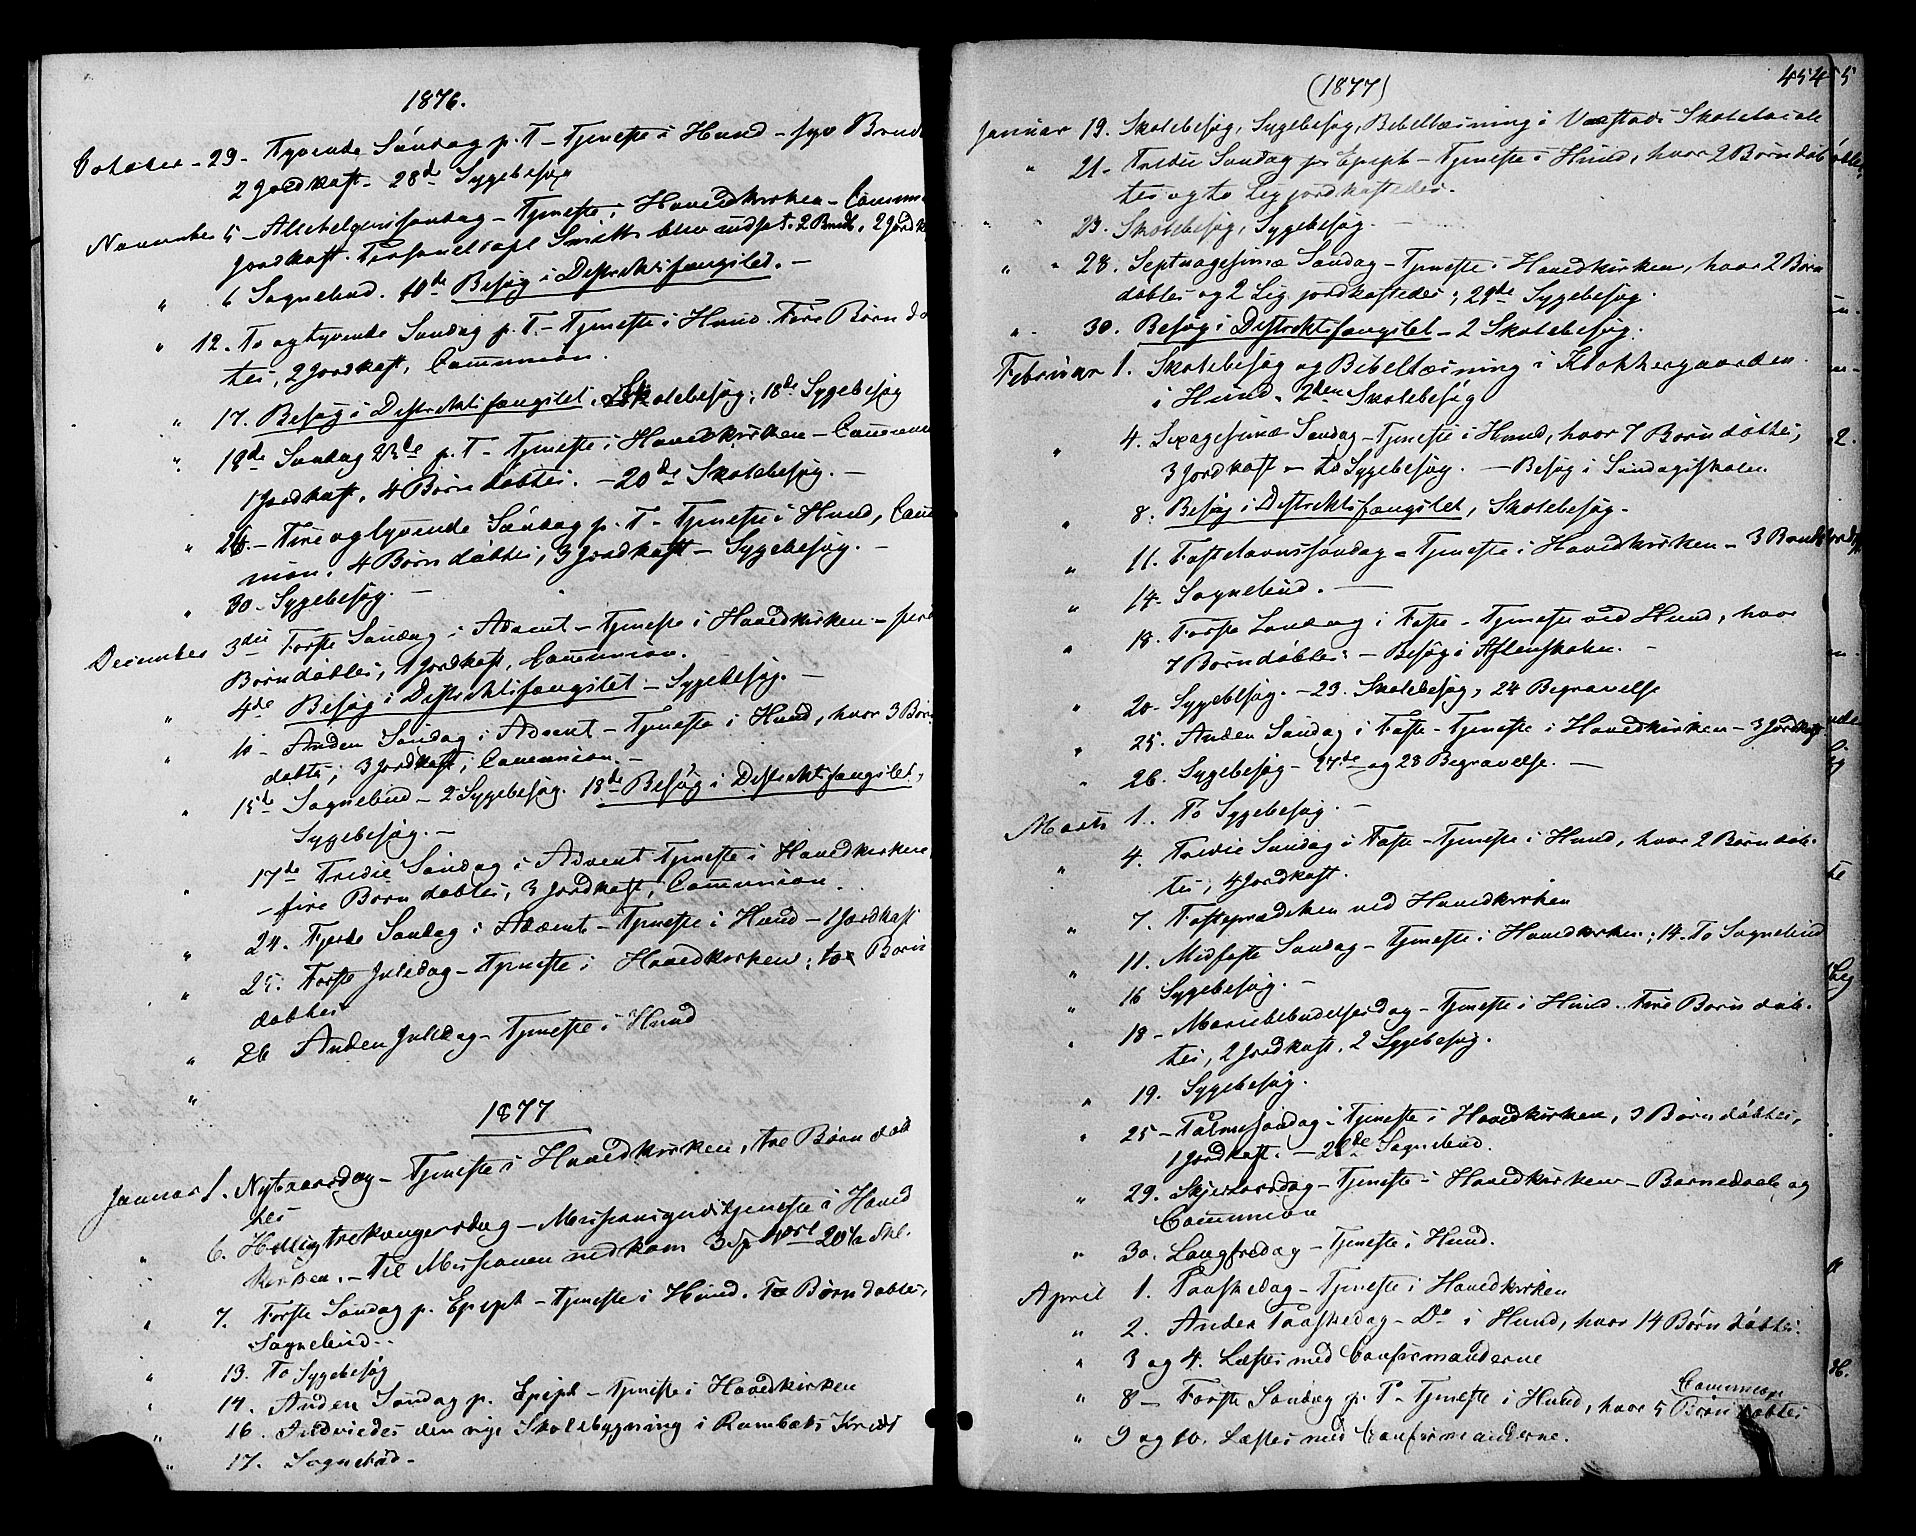 1876.
October - 29 - Tyvende Søndag p. T - Tjeneste i Hund - syv Børn d
2 Jordkast - 28de Sygebesøg
November 5 - Allehelgenssøndag - Tjeneste i Hovedkirken - Commu
Jordkast. Personelcapl Smith blev indsat. 2 Børn, 2 Jordk
" 6 Sognebud. 10de Besøg i Distriktsfængslet. -
" 12. To og tyvende Søndag p. T. - Tjeneste i Hund. Fire Børn dø
tes, 2 Jordkast, Communion.
" 17. Besøg i Distriktsfængslet. Skolebesøg; 18de Sygebesøg
" 18de Søndag 23de p. T - Tjeneste i Hovedkirken - Commun
1 Jordkast, 4 Børn døbtes. - 20de Skolebesøg. -
" 26. - Fire og tyvende Søndag p. T - Tjeneste i Hund, Com
nion. 4 Børn døbtes, 3 Jordkast - Sygebesøg. -
" 30 - Sygebesøg. -
December 3die Første Søndag i Advent - Tjeneste i Hovedkirken - fire
Børn døbtes, 1 Jordkast, Communion.
" 4de Besøg i Distriktsfængslet - Sygebesøg. -
" 10 - Anden Søndag i Advent - Tjeneste i Hund, hvor 3 Børn
døbtes; 3 Jordkast; Communion. -
" 15de Sognebud - 2 Sygebesøg. 18de Besøg i Distriktsfængslet,
Sygebesøg. -
" 17de Tredie Søndag i Advent Tjeneste i Hovedkirken,
- fire Børn døbtes, 3 Jordkast, Communion.
" 24. Fjerde Søndag i Advent - Tjeneste i Hund - 1 Jordkast
" 25. Første Juledag - Tjeneste i Hovedkirken; to Børn
døbtes
" 26 Anden Juledag - Tjeneste i Hund
"
1877
Januar 1. Nytaarsdag - Tjeneste i Hovedkirken, tre Børn døb
tes
" 6. Helligtrekongersdag - Missionsgudstjeneste i Hoved
kirken. - Til Missionen indkom 3 Sp 4 Ort 20 1/2 Skl.
" 7. Første Søndag p. Epiph - Tjeneste i Hund. To Børn døbtes,
Sognebud. -
" 13. To Sygebesøg
" 14. Anden Søndag p. Epiph - Tjeneste i Hovedkirken
" 16. Indviedes den nye Skolebygning i Rambæks Kreds
" 17. Sognebud -
(1877)
454
5
Januar 19. Skolebesøg, Sygebesøg, Bibellæsning i Skolelocale
" 21. Tredie Søndag p. Epiph - Tjeneste i Hund, hvor 2 Børn døb
tes og to Lig jordkastedes.
" " 23. Skolebesøg, Sygebesøg. -
" " 28. Septuagesimæ Søndag - Tjeneste i Hovedkirken, hvor 2 Børn
døbtes og 2 Lig jordkastedes; 29de Sygebesøg.
" 30. Besøg i Distriktsfængslet - 2 Skolebesøg.
Februar 1. Skolebesøg og Bibellæsning i Klokkergaarden
i Hund. 2den Skolebesøg
" 4. Sexagesimæ Søndag - Tjeneste i Hund, hvor 7 Børn døbtes,
3 Jordkast - to Sygebesøg. - Besøg i Søndagsskolen.
" 8. Besøg i Distriktsfængslet, Skolebesøg -
" 11. Fastelavnssøndag - Tjeneste i Hovedkirken - 3 Børn
" 14. Sognebud. -
" 18. Første Søndag i Faste - Tjeneste ved Hund, hvor
7 Børn døbtes. - Besøg i Aftenskolen. -
" 20. Sygebesøg. - 23. Skolebesøg, 24 Begravelse
" 25. Anden Søndag i Faste - Tjeneste i Hovedkirken - 3 Jordkast
" 26. Sygebesøg - 27de og 28 Begravelse. -
Marts 1. To Sygebesøg. -
" 4. Tredie Søndag i Faste - Tjeneste i Hund, hvor 2 Børn døb-
tes, 4 Jordkast.
" 7. Fasteprædiken ved Hovedkirken
" 11. Midfaste Søndag - Tjeneste i Hovedkirken; 14. To Sognebud
" 16 Sygebesøg. -
" 18 - Mariebebudelsesdag - Tjeneste i Hund. Fire Børn døb-
tes, 2 Jordkast, 2 Sygebesøg.
" 19. Sygebesøg.
" 25 - Palmesøndag - Tjeneste i Hovedkirken, 3 Børn døbtes,
1 Jordkast. - 26de Sognebud.
" 29. Skjertorsdag - Tjeneste i Hovedkirken - Barnedaab og
Communion
" 30. Langfredag - Tjeneste i Hund.
April 1. Paaskedag - Tjeneste i Hovedkirken
" 2. Anden Paaskedag - Do i Hund, hvor 14 Børn døbtes.
" 3 og 4. Læstes med Confirmanderne
" 8 - Første Søndag p. P - Tjeneste i Hund, hvor 5 Børn døbtes
Communion
" 9 og 10. Læstes med Confirmanderne.